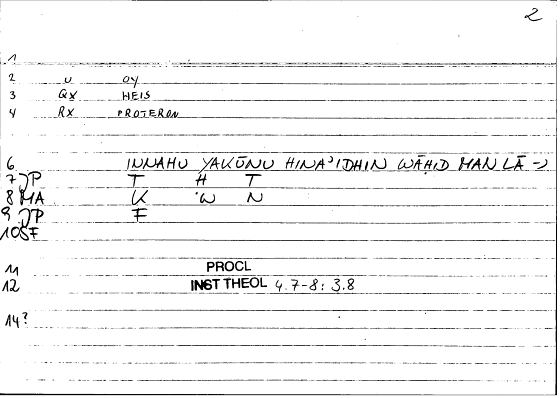 2
1
2 U OY
3 QX HEIS
4 RX PROTERON
6 INNAHU YAKŪNU HINAʾIDHIN WĀḤID MAN LĀ
7 JP T H T
8 MA K W N
9 JP F
10 SF
11 PROCL
12 INST THEOL 4.7-8: 3.8
14?